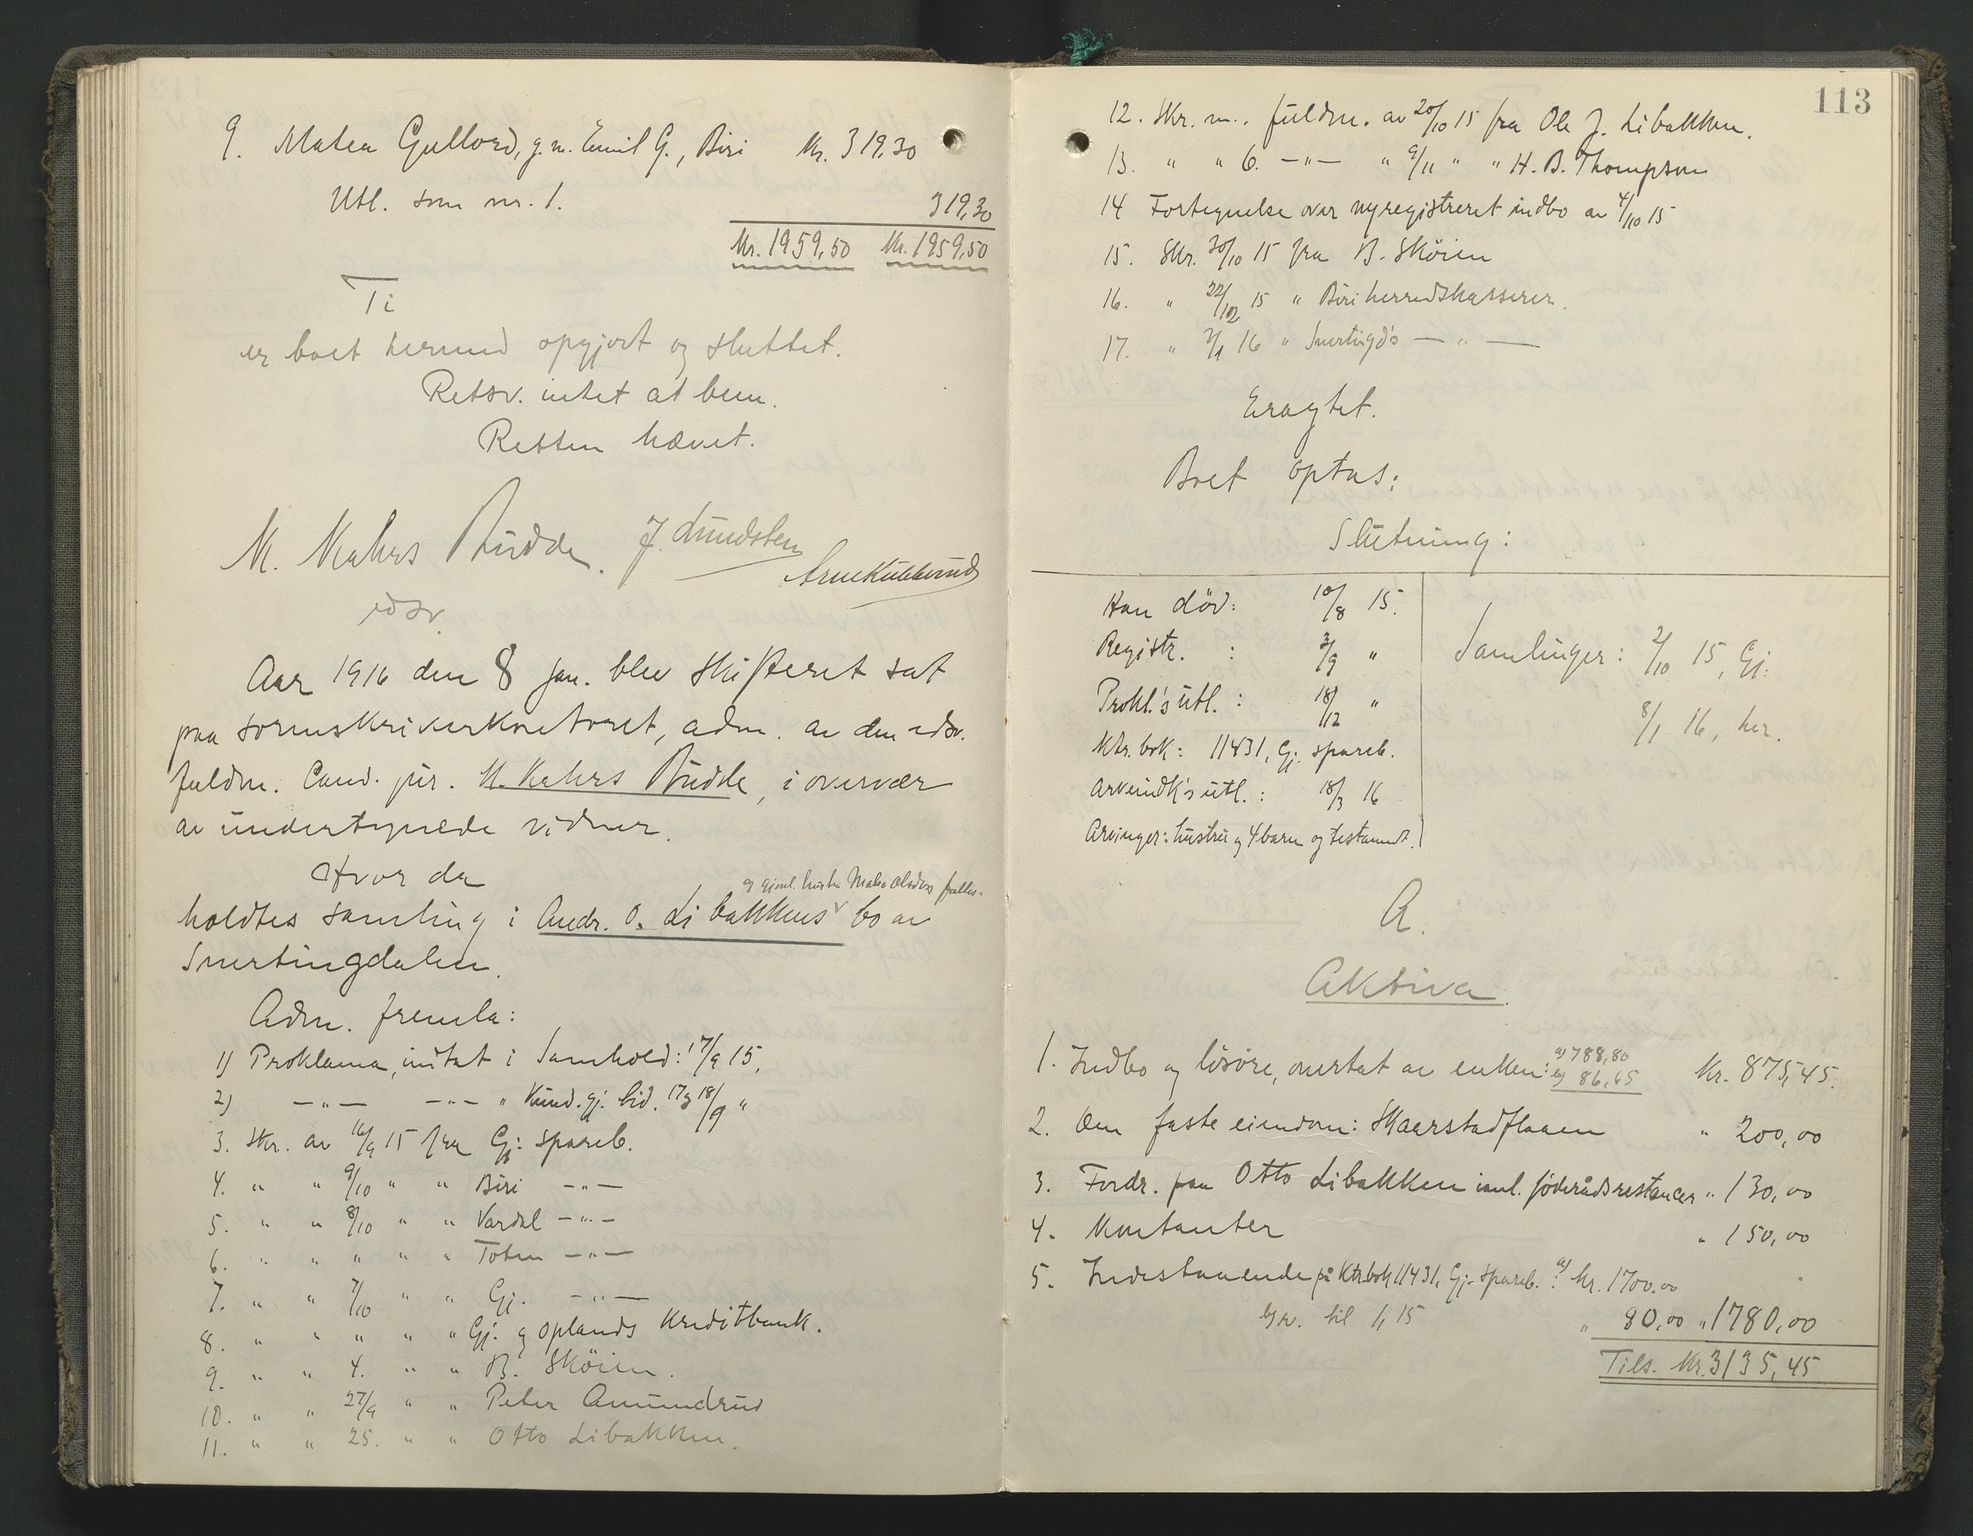 9. Matea Gullord, g.m. Emil G., Biri Kr. 319,30
Utl. som nr. 1. 319,30
Kr. 1959,50 Kr. 1959,50
Ti
er boet hermed opgjort og sluttet.
Retsv. intet at bem.
Retten hævet.
M. Kahrs Budde. J. Lundsten
edsv.
Aar 1916 den 8 jan. blev skifteret sat
paa sorenskriverkontoret, adm. av den edsv.
fuldm. Cand. jur. M. Kahrs Budde, i overvær
av undertegnede vidner.
Hvor da
og gjenl. hustru Matea Olsdtrs fælles-
holdtes samling i Andr. O. Libakkens v bo av
Snertingdalen.
Adm. fremla:
1) Proklama, indtat i Samhold: 17/9 15.
2) —"— —"— " Kund. gj. tid. 17 og 18/9 "
3. Skr. av 16/9 15 fra Gj: spareb.
4. " " 9/10 " " Biri —"—
5. " " 8/10 " " Vardal —"—
6. " " " " " Toten —"—
7. " " 7/10 " " Gj. —"—
8. " " " " " Gj. og Oplands Kreditbank.
9. " " 4. " " B. Sköien.
10. " " 27/9 " " Peter Amundrud
11. " " 25. " " Otto Libakken.
113
12. Skr. m. fuldm. av 20/10 15 fra Ole J. Libakken.
13. " " 6. —"— " 9/11 " " H. B. Thompson
14 Fortegnelse over nyregistreret indbo av 4/10 15
15. Skr. 30/10 15 fra B. Sköien
16. " 22/12 15 " Biri herredskasserer.
17. " 3/1 16 " Snertingd's —"—
Eragtet.
Boet optas:
Slutning:
Han död: 10/8 15.
Registr. : 3/9 "
Prokl.'s utl. : 18/12 "
Ktr. bok: 11431, Gj. spareb.
Arveindk's utl. : 18/3 16
Arvinger: hustru og 4 barn og testament.
Samlinger: 2/10 15, Gj:
8/1 16, her.
A.
Aktiva.
1. Indbo og lösöre, overtat av enken: a) 788,80
b) 86,65 Kr. 875,45.
2. Den faste eiendom: Skaarstadflaaen " 200,00
3. Fordr. paa Otto Libakken incl. föderådsrestancer " 130,00
4. Kontanter " 150,00
5. Indestaaende på Ktr.bok 11431, Gj. spareb. : a) kr. 1700.00
b) r. til 1/1 15 " 80,00 " 1780,00
Tils. Kr. 3135,45